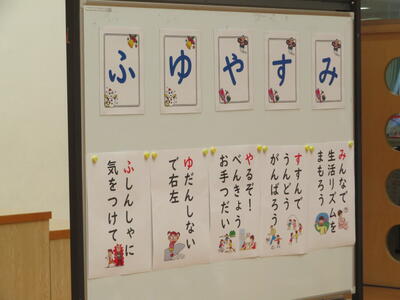 ふ ゆ や す み
ふしんしゃに
気をつけて
ゆだんしない
で右左
やるぞ!
べんきょう
お手つだい
すすんで
うんどう
がんばろう
みんなで
生活リズムを
まもろう